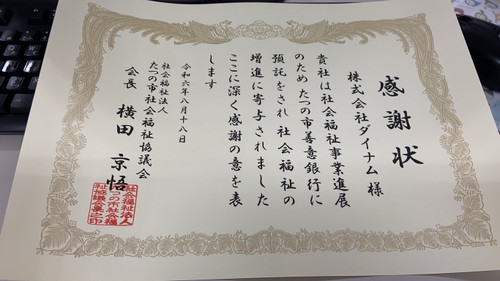 感謝状
株式会社ダイナム 様
貴社は社会福祉事業進展
のため たつの市善意銀行に
預託をされ 社会福祉の
増進に寄与されました
ここに深く感謝の意を表
します
令和六年八月十八日
社会福祉法人
たつの市社会福祉協議会
会長 横田 京悟
社会福祉法人
たつの市社会福
祉協議会長之印